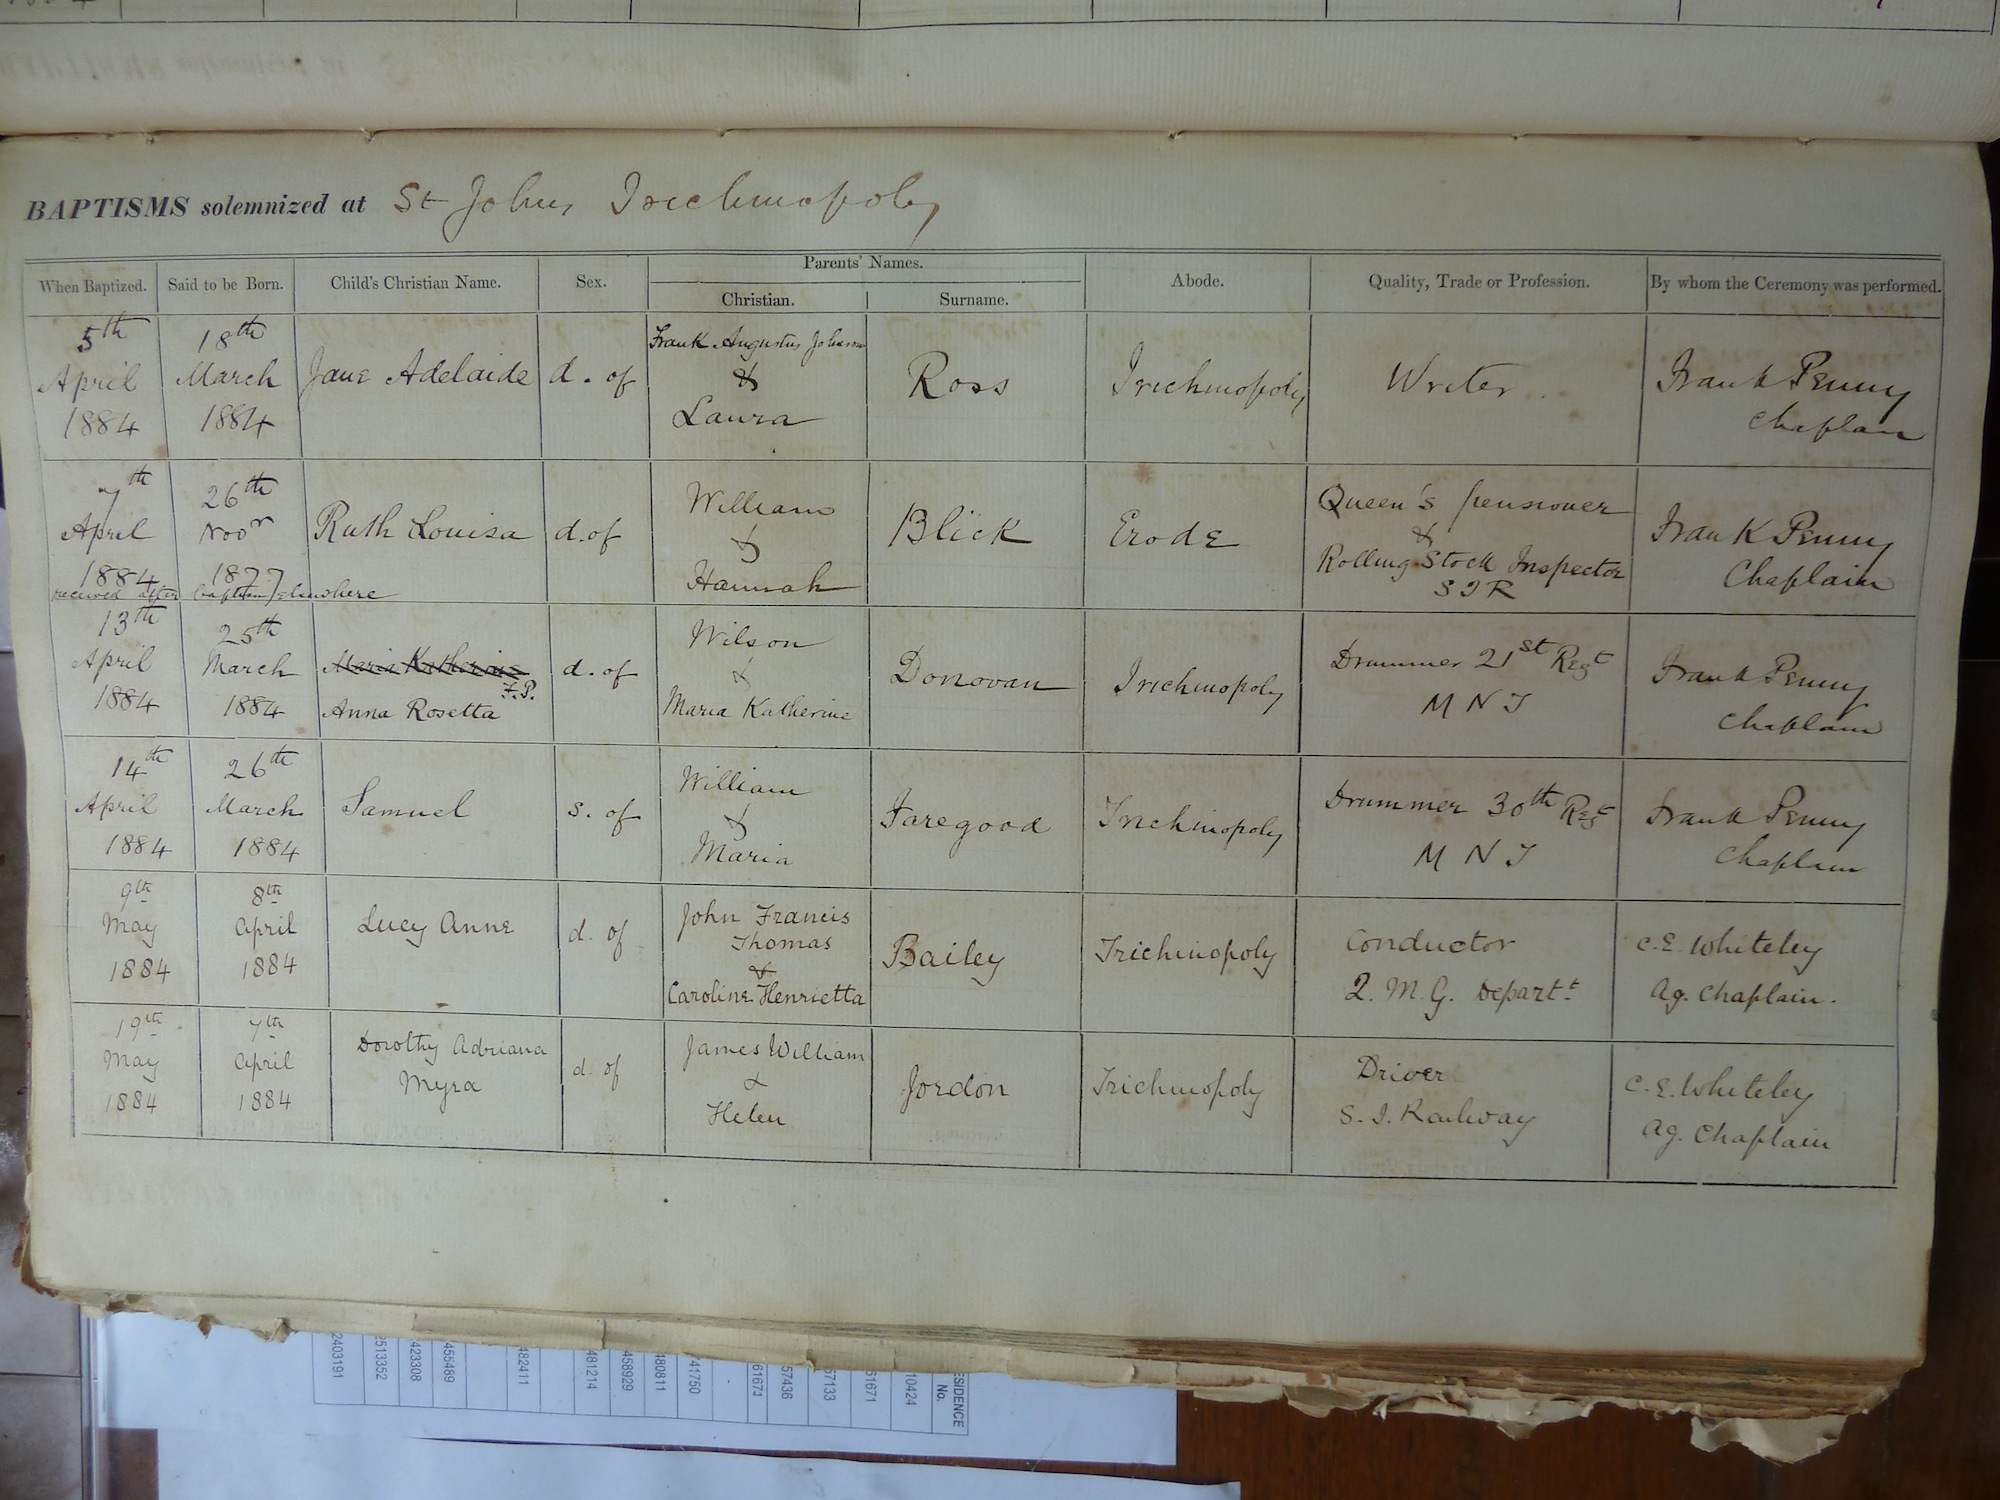 BAPTISMS solemnized at St Johns, Trichinopoly
When Baptized. Said to be Born. Child's Christian Name. Sex. Parents' Names. Abode. Quality, Trade or Profession. By whom the Ceremony was performed.
Christian. Surname.
5th April 1884
18th March 1884
Jane Adelaide
d. of
Frank Augustus Johnson & Laura
Ross
Trichinopoly
Writer.
Frank Penny Chaplain
7th April 1884
26th Novr 1877
received after baptism elsewhere
Ruth Louisa
d. of
William & Hannah
Blick
Erode
Queen's pensioner & Rolling Stock Inspector S I R
Frank Penny Chaplain
13th April 1884
25th March 1884
Maria Katherine F.P. Anna Rosetta
d. of
Wilson & Maria Katherine
Donovan
Trichinopoly
Drummer 21st Regt M N I
Frank Penny Chaplain
14th April 1884
26th March 1884
Samuel
s. of
William & Maria
Faregood
Trichinopoly
Drummer 30th Regt M N I
Frank Penny Chaplain
9th May 1884
8th April 1884
Lucy Anne
d. of
John Francis Thomas & Caroline Henrietta
Bailey
Trichinopoly
Conductor Q. M. G. Departt
C. E. Whiteley Ag. Chaplain.
19th May 1884
7th April 1884
Dorothy Adriana Myra
d. of
James William & Helen
Jordon
Trichinopoly
Driver S. I. Railway
C. E. Whiteley Ag. Chaplain
2403191
2513352
423308
455489
482411
481214
458929
480811
41750
61671
57436
67133
61671
10424
No.